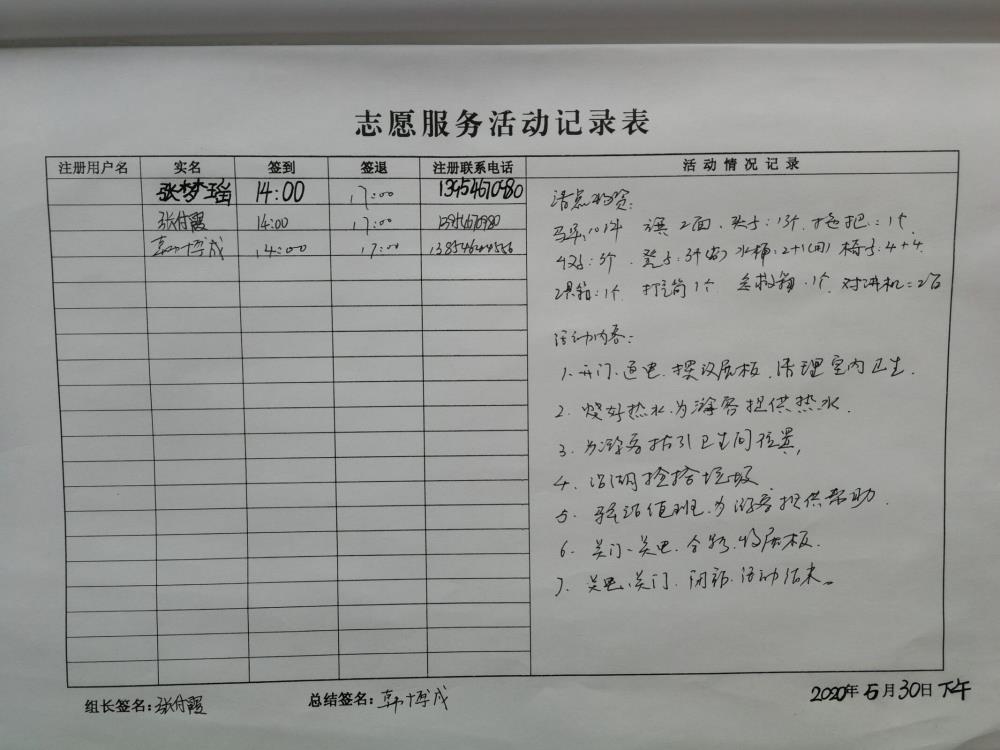 志愿服务活动记录表
注册用户名 实名 签到 签退 注册联系电话 活动情况记录
张梦瑶 14:00 17:00
张付霞 14:00 17:00
韩博成 14:00 17:00
清点物资:
马甲:10件 旗2面 夹子:13个 拖把:1个
水桶:2+1(旧) 椅子:4+4
工具箱:1个 打气筒1个 急救箱:1个 对讲机=2台
活动内容:
1.开门.通电.摆放展板.清理室内卫生.
2.烧好热水.为游客提供热水.
3.为游客指引卫生间位置,
4.沿湖捡拾垃圾
5.驿站值班.为游客提供帮助.
6.关门、关电.收展板.
7.关电、关门.闭站.活动结束。
组长签名:张付霞 总结签名:韩博成 2020年5月30日下午